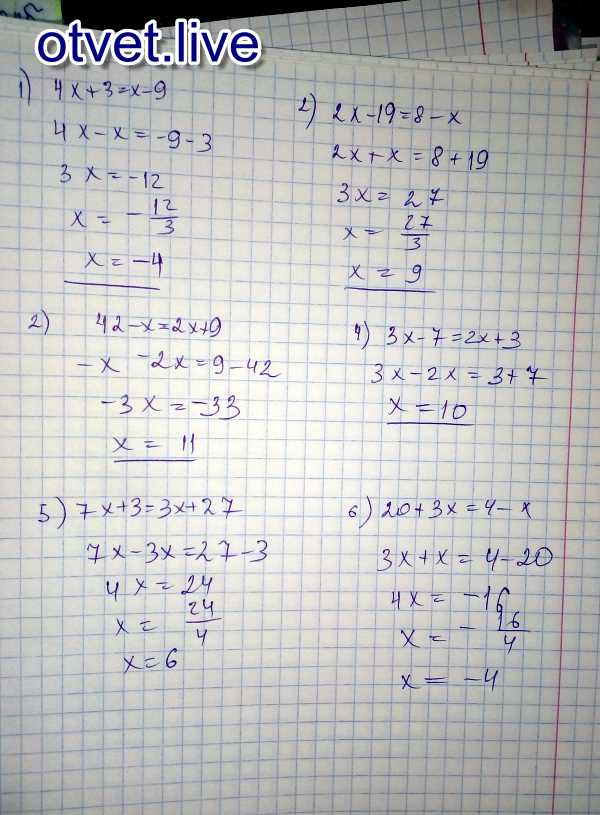 otvet.live
1) 4x+3=x-9
4x-x=-9-3
3x=-12
x=-12/3
x=-4
2) 2x-19=8-x
2x+x=8+19
3x=27
x=27/3
x=9
2) 42-x=2x+9
-x -2x=9-42
-3x=-33
x=11
4) 3x-7=2x+3
3x-2x=3+7
x=10
5) 7x+3=3x+27
7x-3x=27-3
4x=24
x=24/4
x=6
6) 20+3x=4-x
3x+x=4-20
4x=-16
x=-16/4
x=-4